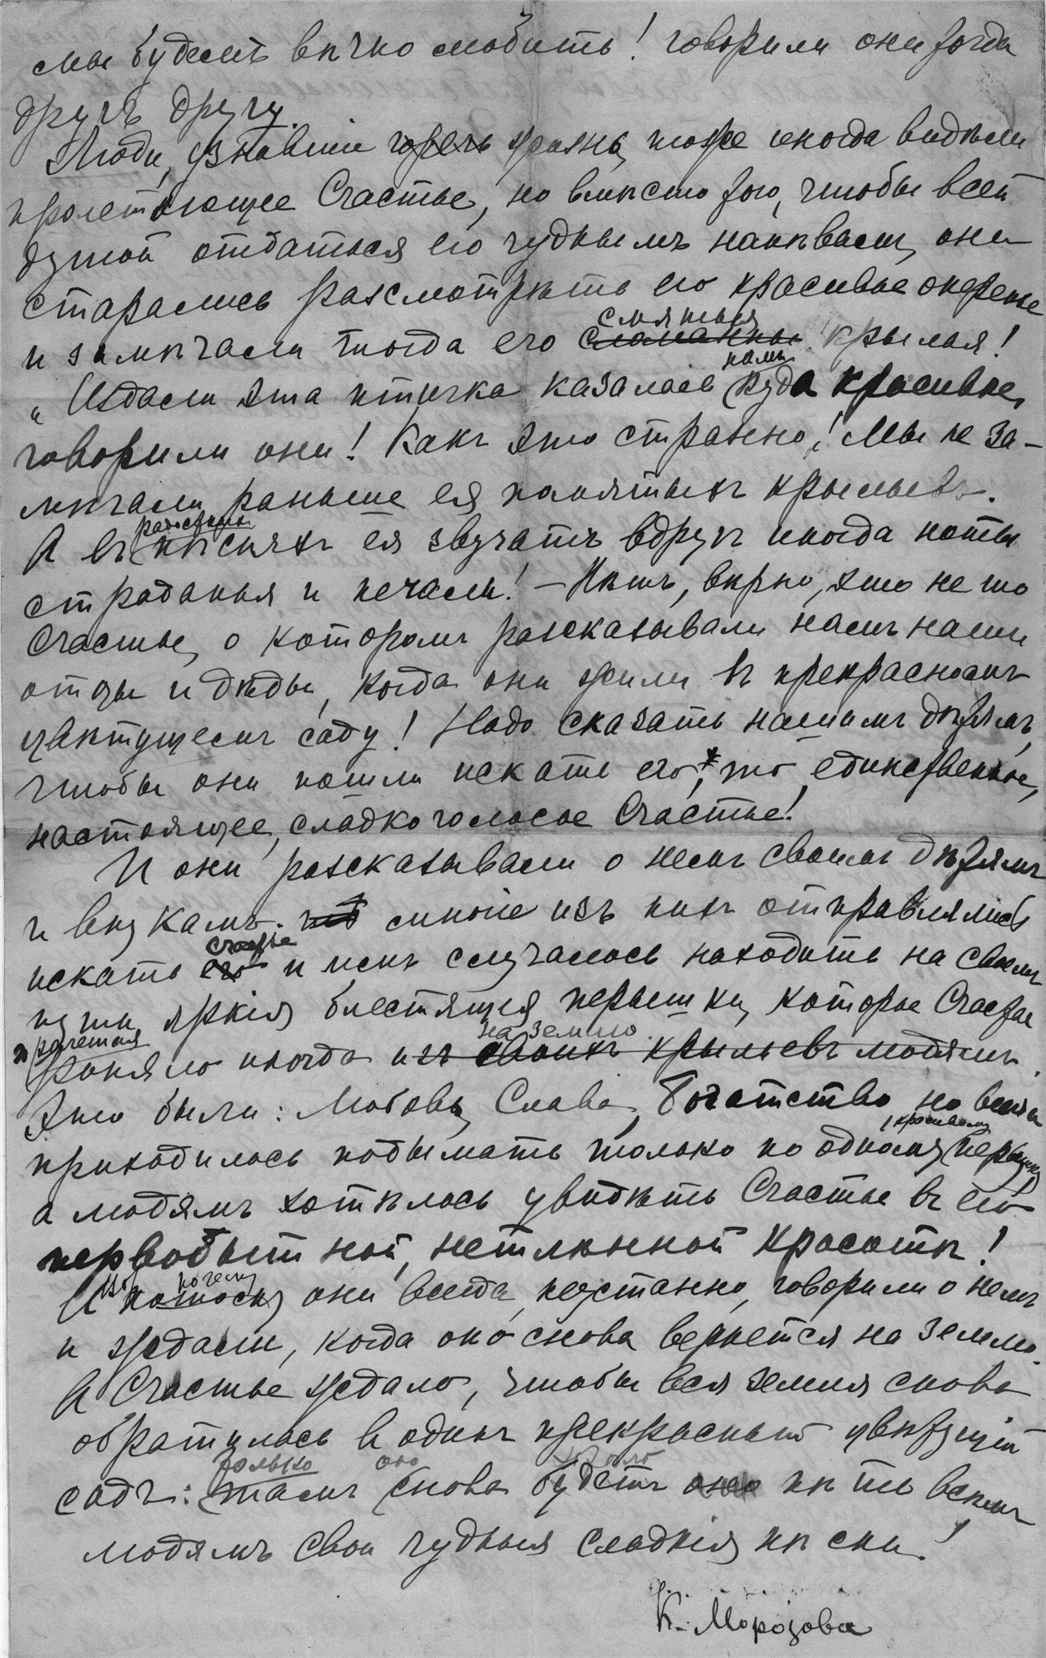 мы будемъ вѣчно любить! говорили они тогда
другъ другу.
Люди, узнавшіе горечь жизни, тоже иногда видѣли
пролетающее Счастье, но вмѣсто того, чтобы всей
душой отдаться его чуднымъ напѣвамъ, они
старались разсмотрѣть его красивое оперенье
смятыя
и замѣчали тогда его сломанныя крылья!
намъ
„Издали эта птичка казалась куда красивѣе,
говорили они! Какъ это странно! Мы не за-
мѣчали раньше ея помятыхъ крыльевъ.
А въ пѣсняхъ ея звучатъ вдругъ иногда ноты
страданья и печали! — Нѣтъ, вѣрно, это не то
Счастье, о которомъ разсказывали намъ наши
отцы и дѣды, когда они жили въ прекрасномъ
цвѣтущемъ саду! Надо сказать нашимъ дѣтямъ,
чтобы они пошли искать его, то, единственное,
настоящее, сладкоголосое Счастье!
И они разсказывали о немъ своимъ дѣтямъ
и внукамъ. многіе изъ нихъ отправлялись
счастье
искать его и имъ случалось находить на своемъ
пути яркія, блестящія перышки, которые Счастье
пролетая на землю
роняло иногда изъ своихъ крыльевъ людямъ.
Это были: Любовь, Слава, Богатство, но всѣмъ
красивому
приходилось подымать только по одному перышку,
а людямъ хотѣлось увидѣть Счастье въ его
первобытной, нетлѣнной красотѣ!
Но почему
И потому они всегда, неустанно, говорили о немъ
и ждали, когда оно снова вернется на землю.
А Счастье ждало, чтобы вся земля снова
обратилась въ одинъ прекрасный цвѣтущій
только оно
садъ: тамъ снова будетъ оно пѣть всѣмъ
людямъ свои чудныя сладкія пѣсни!
К. Морозова